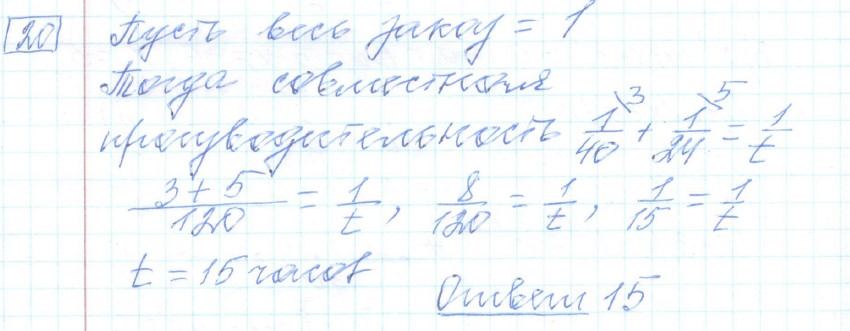 20 Пусть весь заказ = 1
Тогда совместная
производительность 1/40 \3 + 1/24 \5 = 1/t
3+5/120 = 1/t, 8/120 = 1/t, 1/15 = 1/t
t = 15 часов
Ответ 15